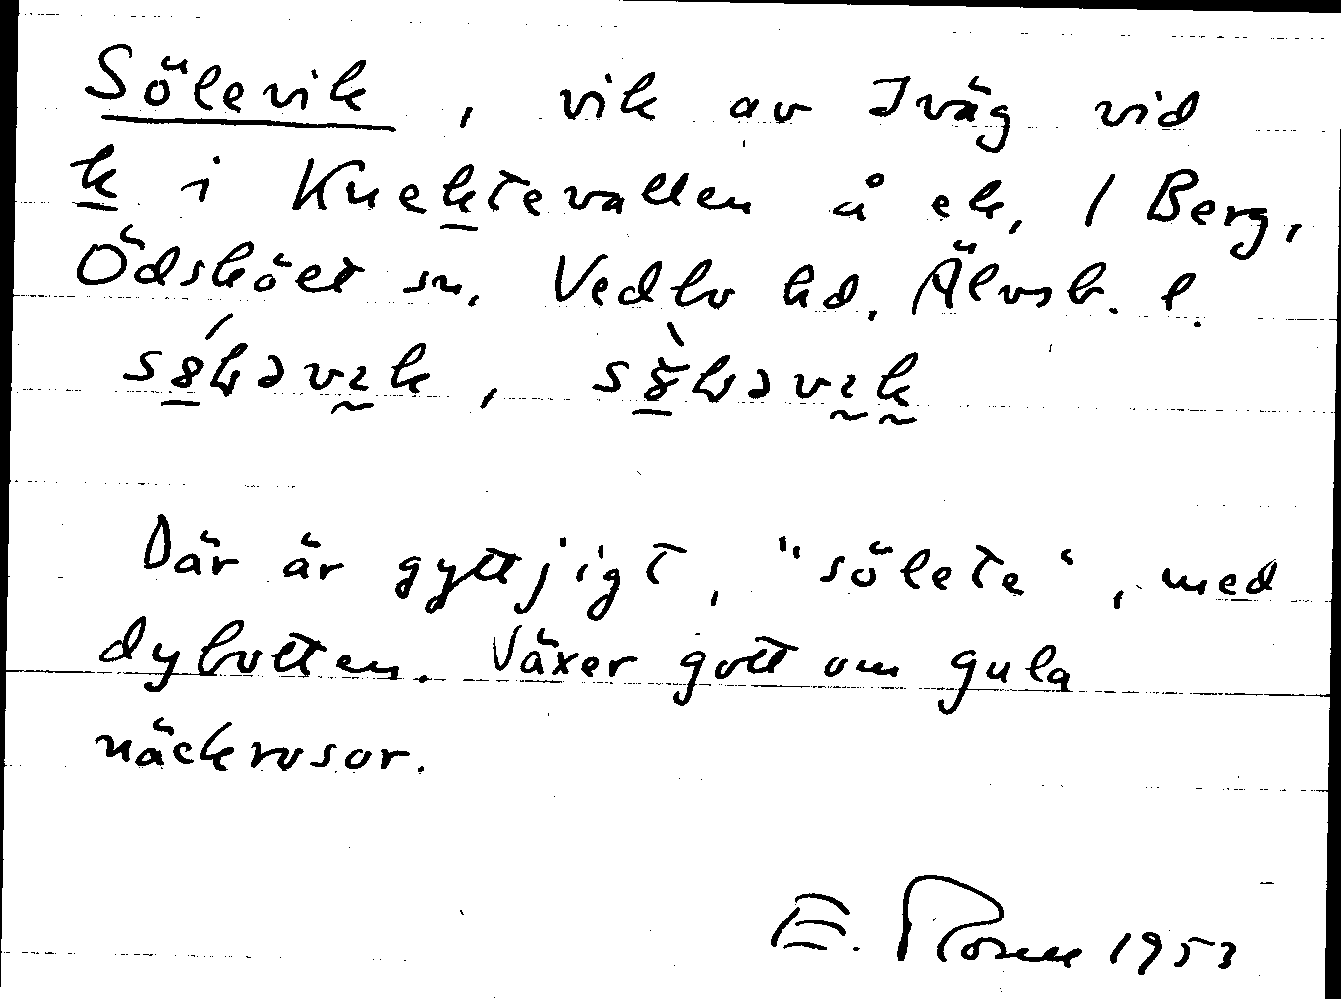 Sölevik, vik av Iväg vid
k i Knektevallen å ek, 1 Berg,
Ödsköłt sn, Vedbo hd, Älvsb. l.
Där är gyttjigt, "sölete", med
dybotten. Växer gott om gula
näckrosor.
E. Rosell 1953